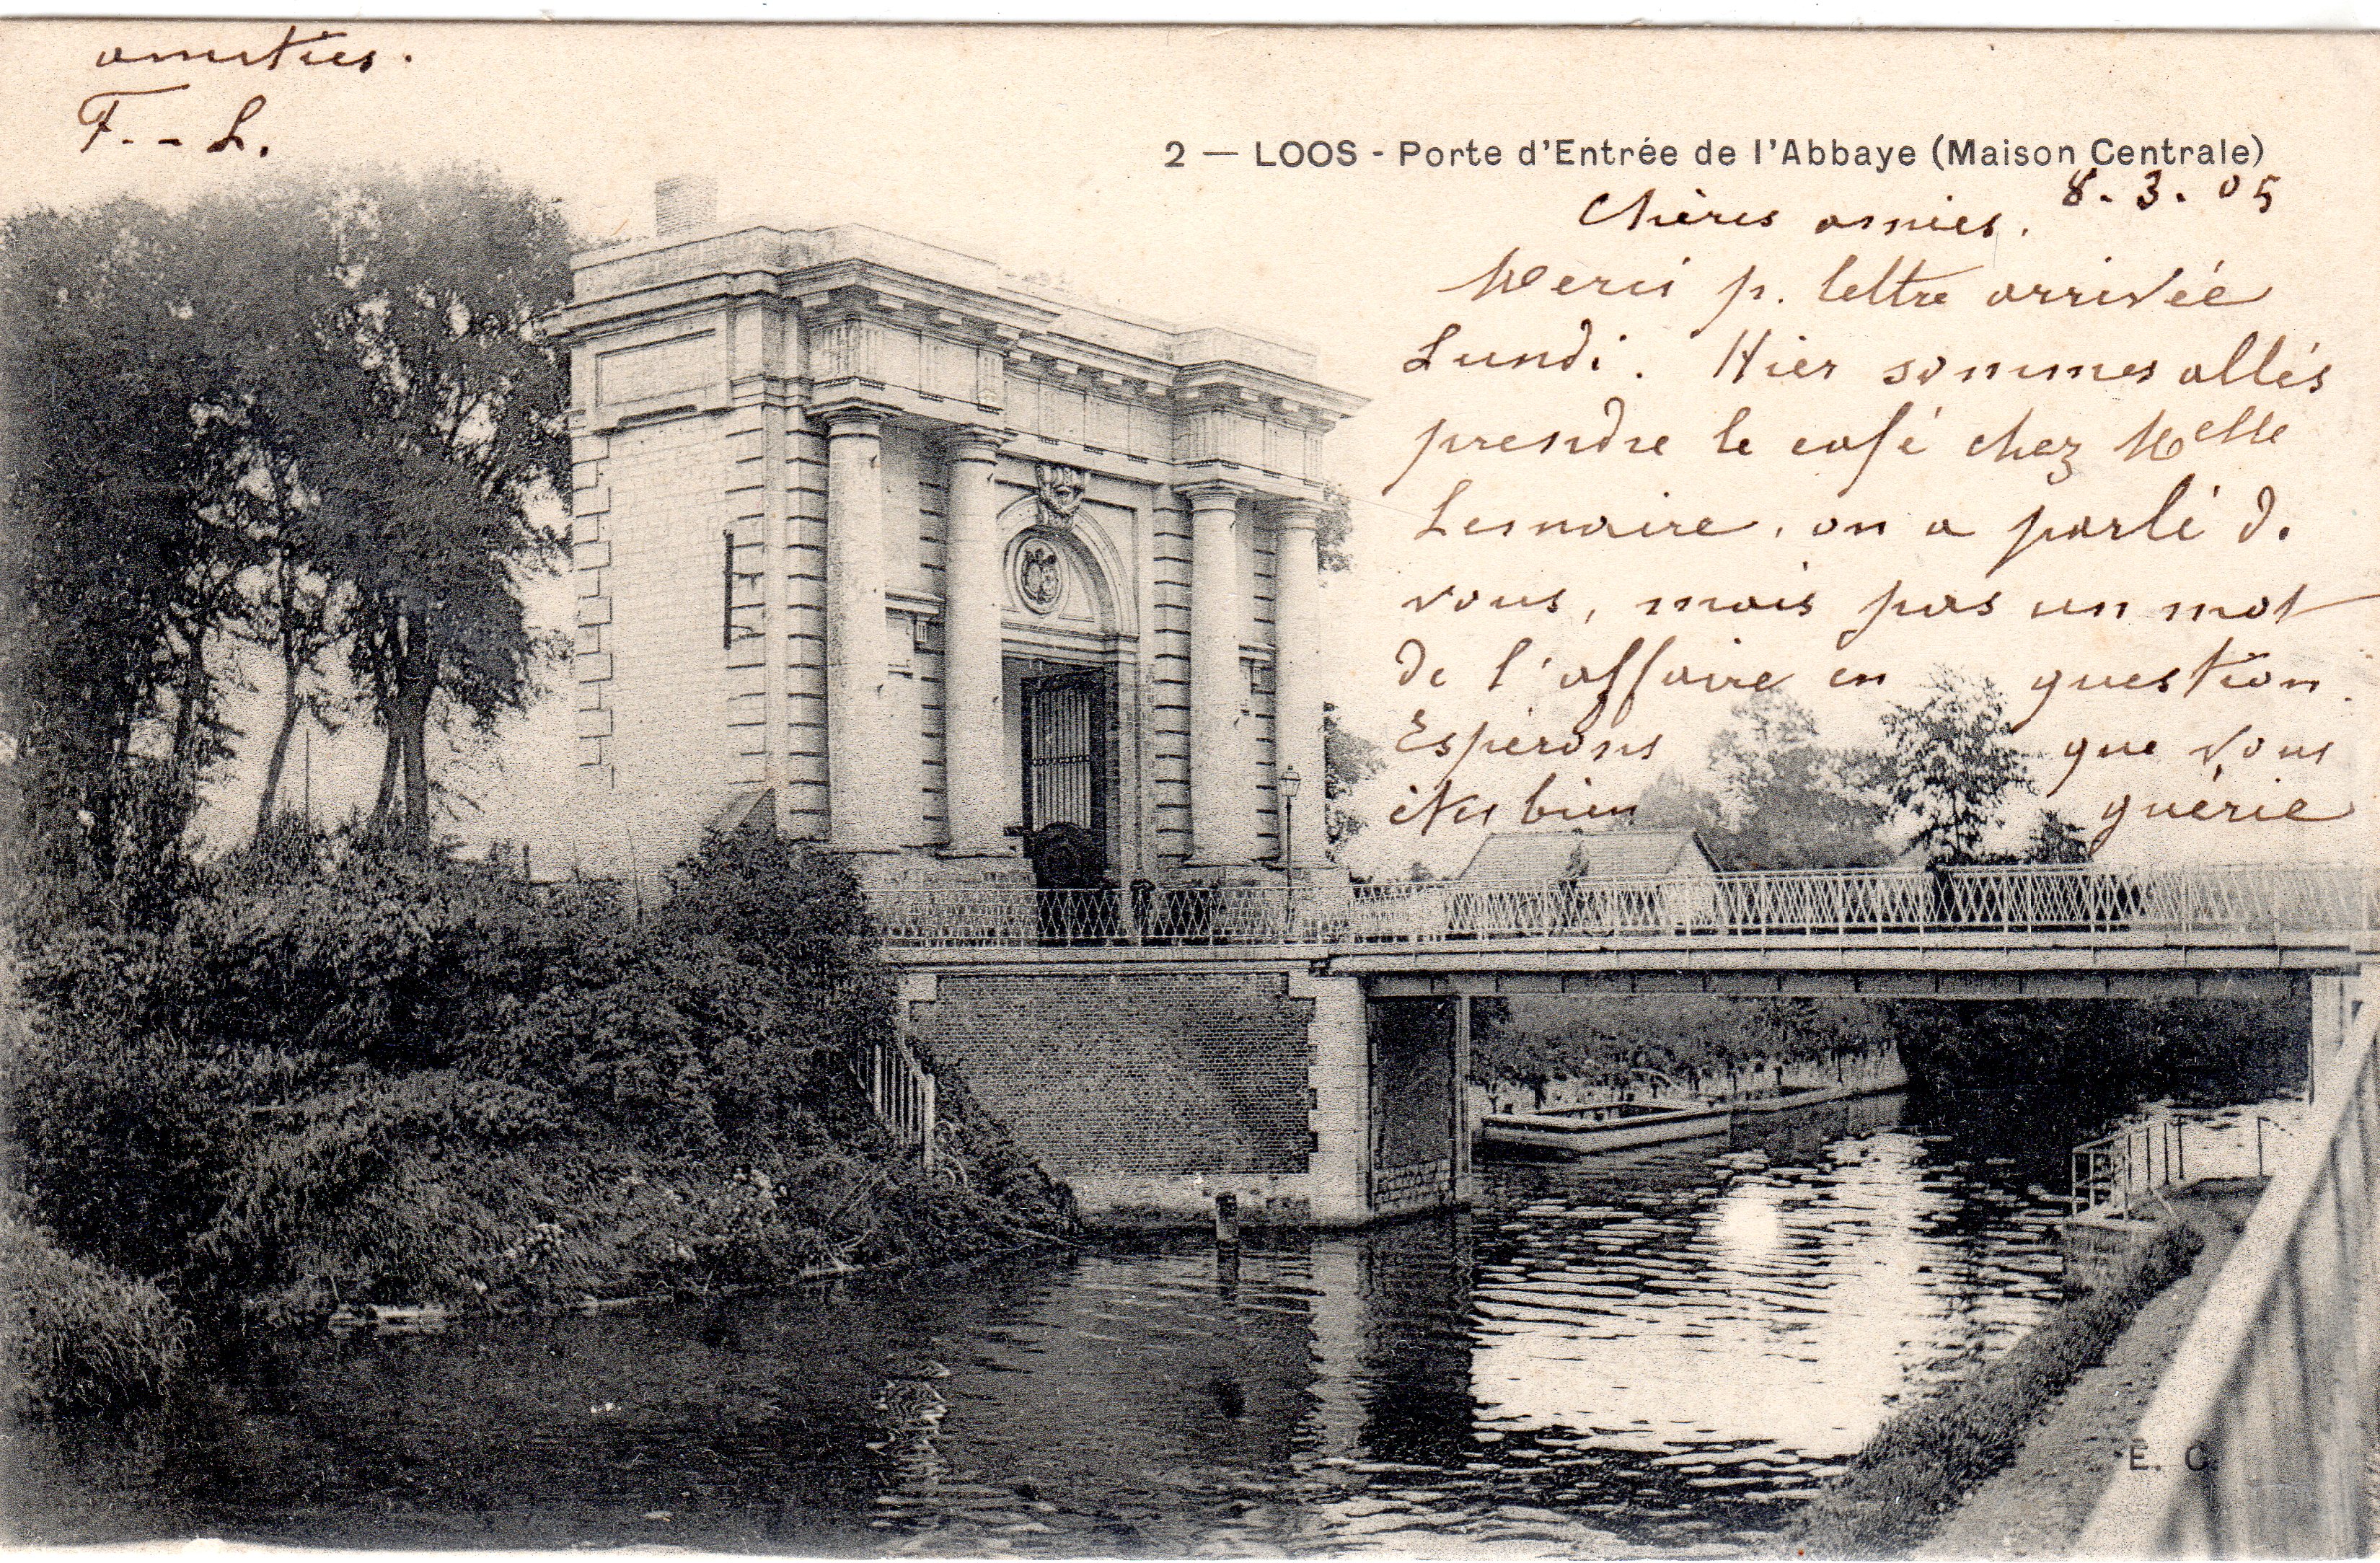 2 — LOOS - Porte d'Entrée de l'Abbaye (Maison Centrale)
8. 3. 05
Chères amies.
Merci p. lettre arrivée
Lundi. Hier sommes allés
prendre le café chez Melle
Lemaire, on a parlé d.
vous, mais pas un mot
de l'affaire en question.
Espérons que vous
êtes bien guérie
amitiés.
F. - L.
E. C.